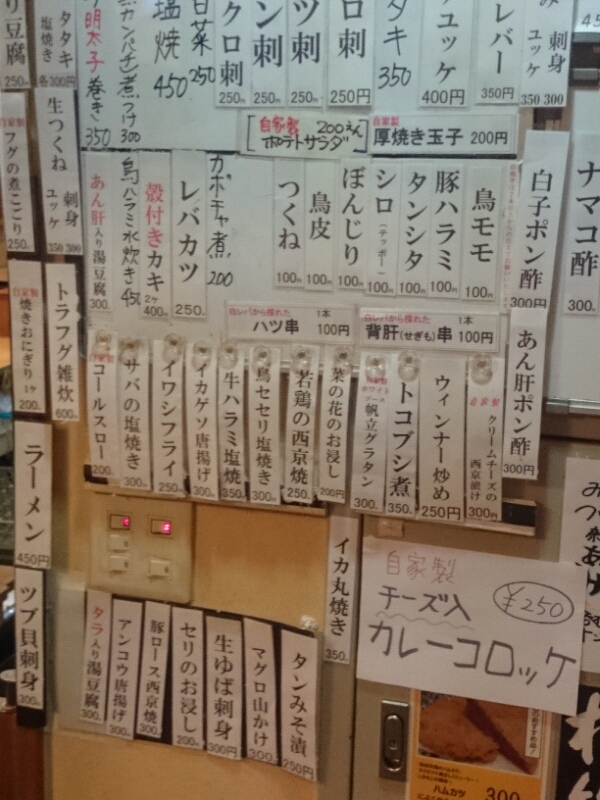 り豆腐 250円
タタキ 塩焼き 各300円
明太子巻き 350
カンパチ煮つけ 300
塩焼 450
白菜 250
クロ刺 250円
ン刺 250円
ツ刺 250円
ロ刺 250円
タキ 350
ユッケ 400円
レバー 350円
刺身 ユッケ 350 300
自家製 フグの煮こごり 250
生つくね
刺身 ユッケ 350 300
自家製 ポテトサラダ 200えん
自家製 厚焼き玉子 200円
あん肝入り湯豆腐 300
鳥ハラミ水炊き 450
殻付きカキ 2ケ 400円
レバカツ 250
カボチャ煮 200
つくね 100円
鳥皮 100円
ぼんじり 100円
シロ(テッポー) 100円
タンシタ 100円
豚ハラミ 100円
鳥モモ 100円
白子ポン酢 300円
ナマコ酢 300
自家製 焼きおにぎり 1ケ 200
トラフグ雑炊 600
白レバから採れた ハツ串 1本 100円
白レバから採れた 背肝(せぎも)串 1本 100円
自家製 コールスロー 200
サバの塩焼き 300
イワシフライ 250
イカゲソ唐揚げ 300
牛ハラミ塩焼 350
鳥セセリ塩焼き 300
若鶏の西京焼 250
菜の花のお浸し 200円
自家製 ホワイトソース 帆立グラタン 300
トコブシ煮 350
ウィンナー炒め 250円
自家製 クリームチーズの西京漬け 300円
あん肝ポン酢 300円
ラーメン 450円
ツブ貝刺身 300
タラ入り湯豆腐 300
アンコウ唐揚げ 300
豚ロース西京焼 300
セリのお浸し 200
生ゆば刺身 300円
マグロ山かけ 300
タンみそ漬 250円
イカ丸焼き 350
自家製
チーズ入 ¥250
カレーコロッケ
ハムカツ 300